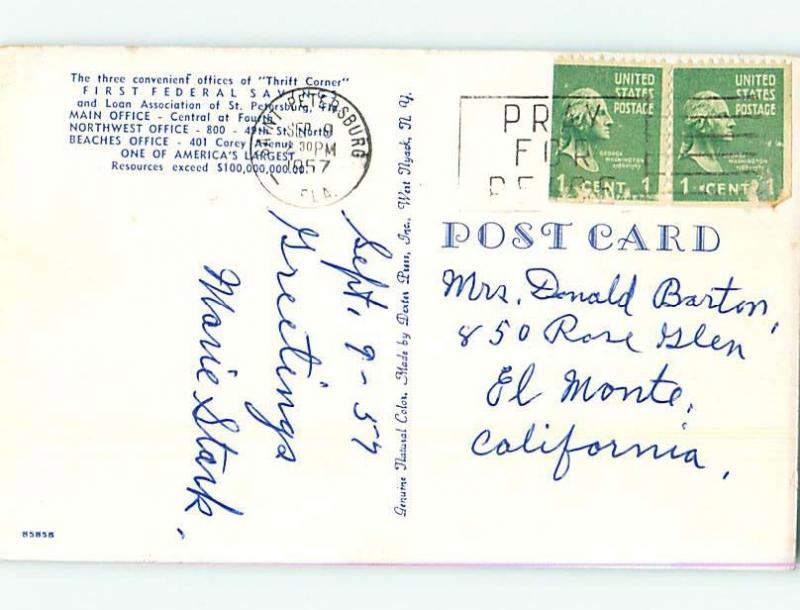 The three convenient offices of "Thrift Corner"
FIRST FEDERAL SAVINGS
and Loan Association of St. Petersburg, Fla.
MAIN OFFICE - Central at Fourth
NORTHWEST OFFICE - 800 - 49th St. North
BEACHES OFFICE - 401 Corey Avenue
ONE OF AMERICA'S LARGEST
Resources exceed $100,000,000.00.
SAINT PETERSBURG
SEP 9
30PM
1957
FLA.
PRAY
FOR
PEACE
UNITED
STATES
POSTAGE
GEORGE
WASHINGTON
1 CENT 1
UNITED
STATES
POSTAGE
GEORGE
WASHINGTON
1 CENT 1
Sept. 9-57
Greetings
Marie Stark.
Genuine Natural Color. Made by Dexter Press, Inc., West Nyack, N. Y.
POST CARD
Mrs. Donald Barton,
850 Rose Glen
El Monte,
California,
85858